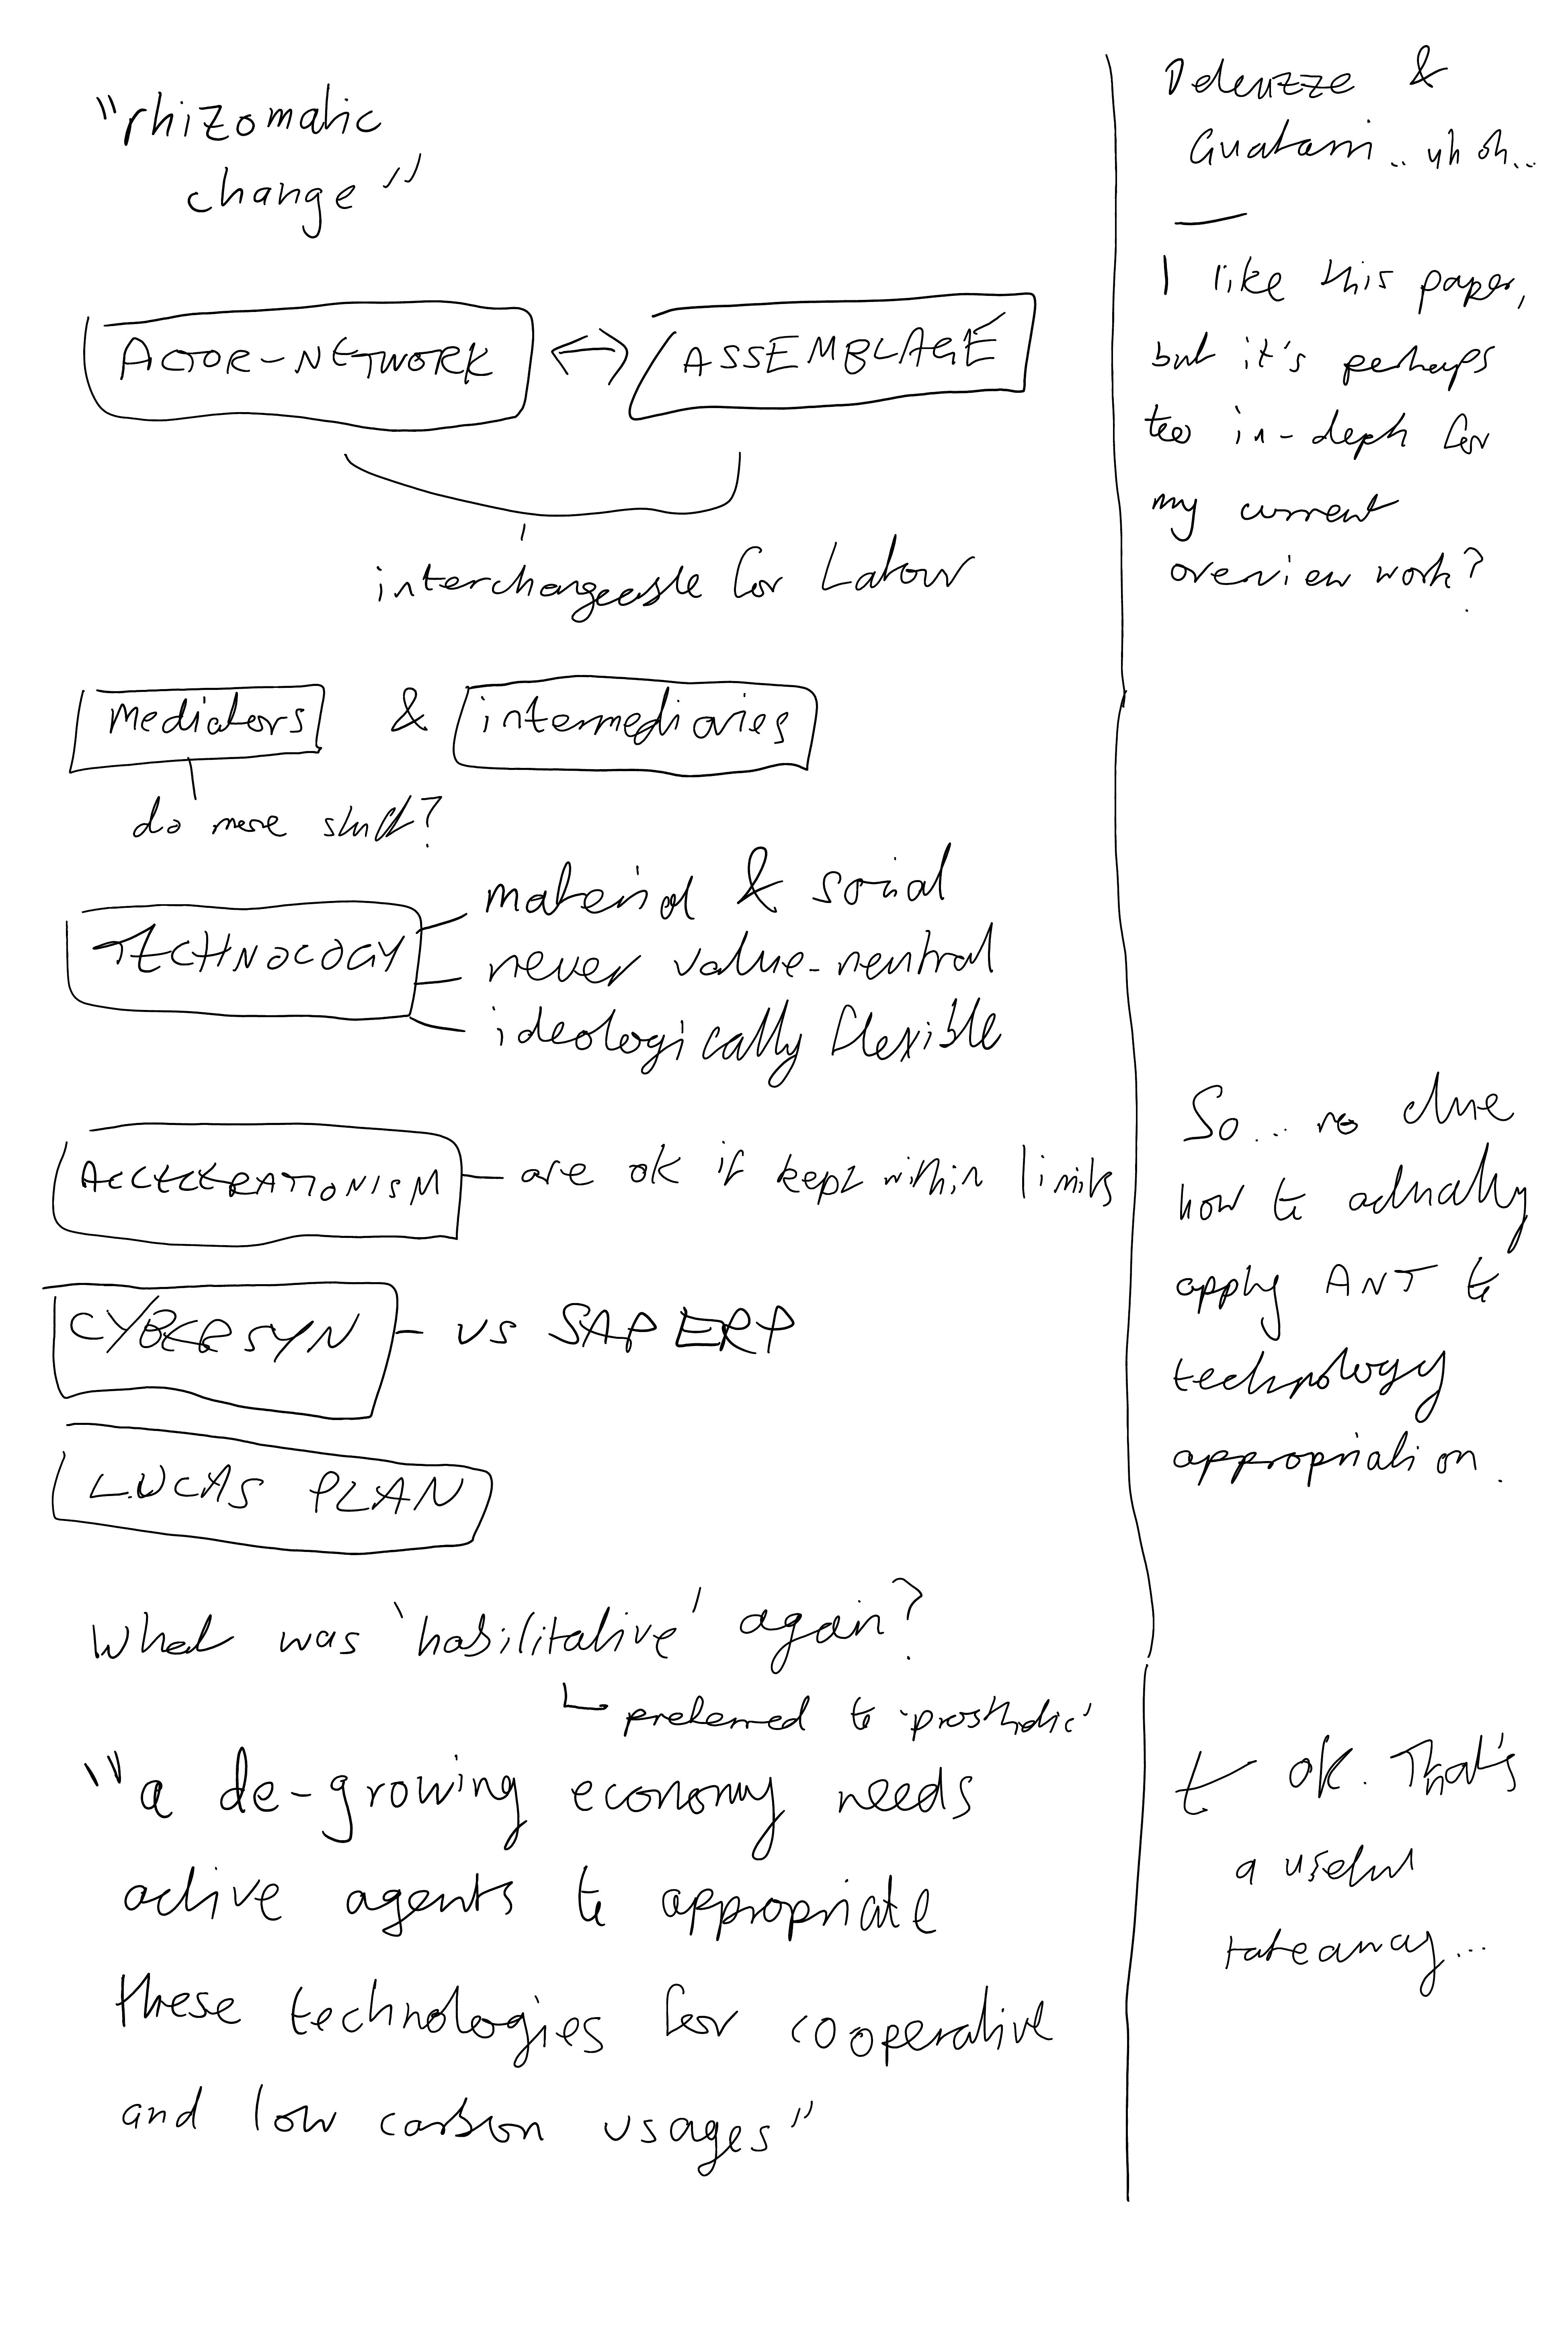 "rhizomatic
change"
ACTOR-NETWORK <-> ASSEMBLAGE
interchangeable for Latour
mediators & intermediaries
do more stuff?
TECHNOLOGY
material & social
never value-neutral
ideologically flexible
ACCELERATIONISM - are ok if kept within limits
CYBERSYN - vs SAP ERP
LUCAS PLAN
What was 'habilitative' again?
preferred to 'prosthetic'
"a de-growing economy needs
active agents to appropriate
these technologies for cooperative
and low carbon usages"
Deleuzze &
Guatarri.. uh oh...
—
I like this paper,
but it's perhaps
too in-deph for
my current
overview work?
So... no clue
how to actually
apply ANT to
technology
appropriation.
ok. That's
a useful
takeaway...